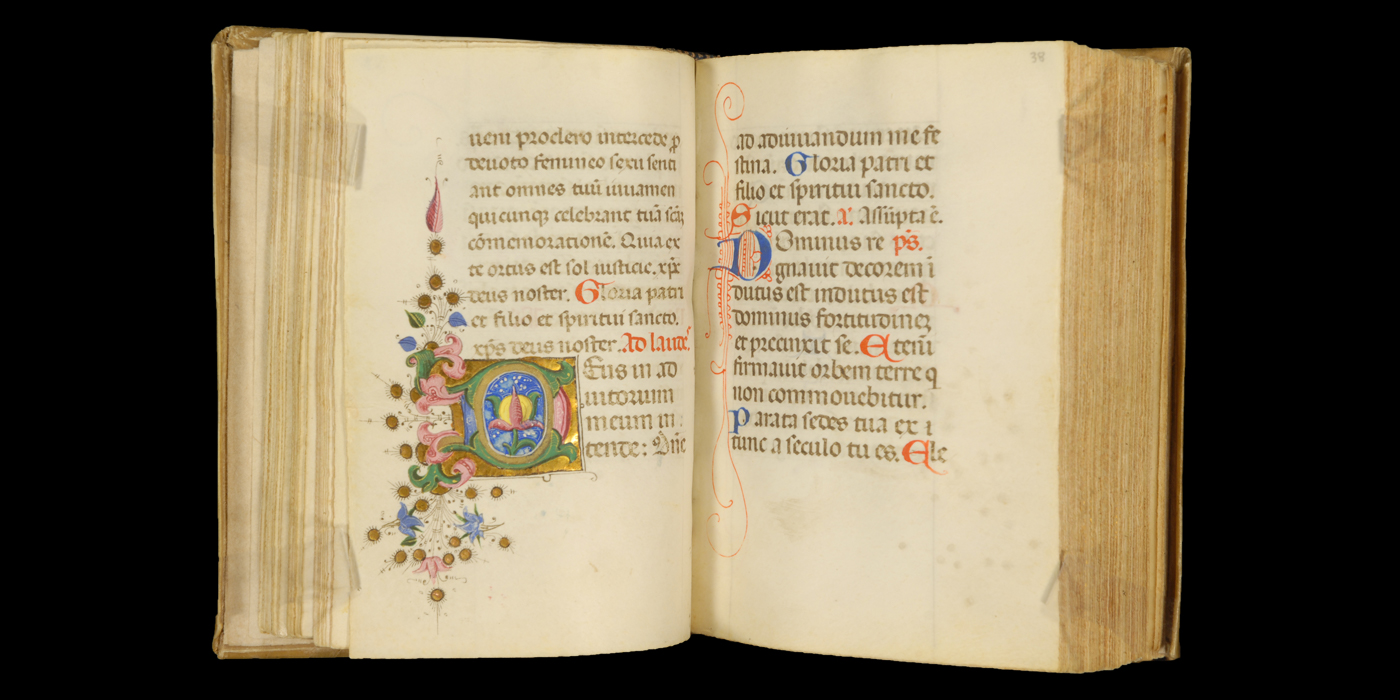 ueni pro clero intercede ꝓ
deuoto femineo sexu senti
ant omnes tuū iuuamen
quicunqꝫ celebrant tuā scāꝫ
cōmemorationē. Quia ex
te ortus est sol iusticie. xp̄c
deus noster. Gloria patri
et filio et spiritui sancto.
xp̄s deus noster. Ad laudeꝫ
Deus in ad
iutorium
meum in
tende: Dn̄e
38
ad adiuuandum me fe
stina. Gloria patri et
filio et spiritui sancto.
Sicut erat. a. Assūpta ē.
Dominus re ps.
gnauit decorem ī
dutus est indutus est
dominus fortitudineꝫ
et precinxit se. Etenī
firmauit orbem terre q
non commouebitur.
Parata sedes tua ex i
tunc a seculo tu es. Ele